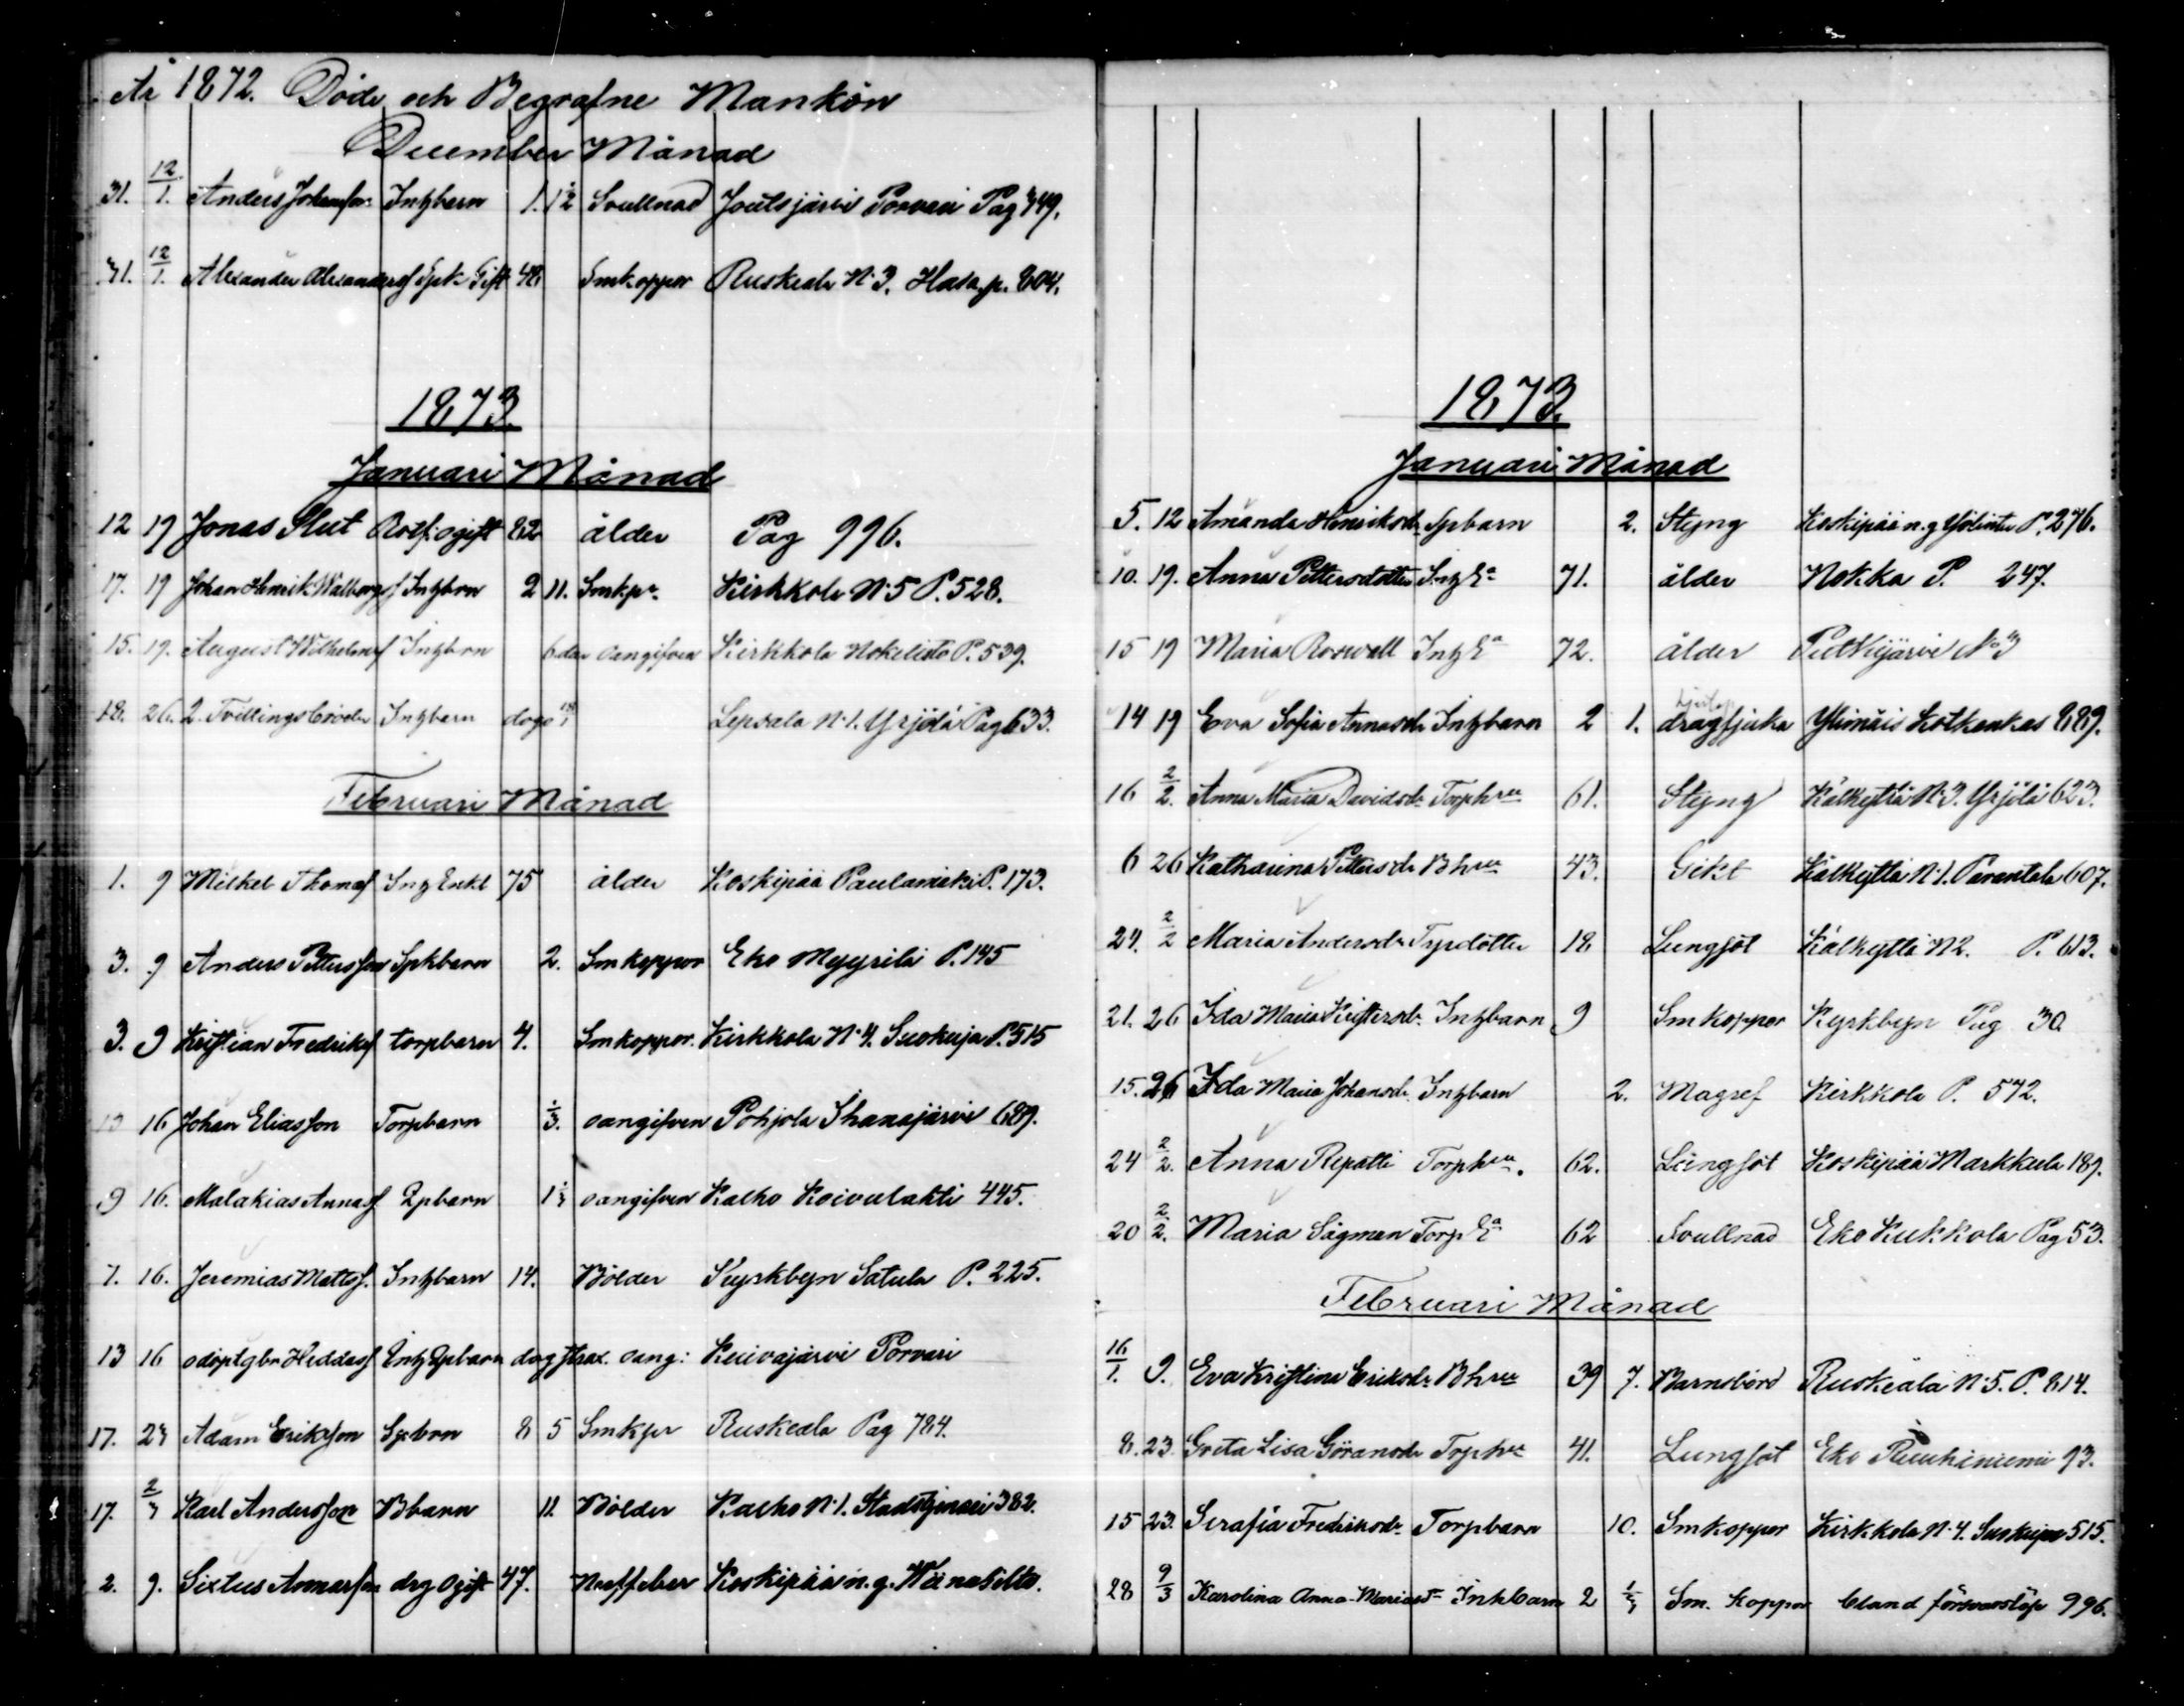 År 1872. Döde och Begrafne Mankön
December Månad
31. 12/1. Anders Johansson Inhbarn 1. 1/2 Svullnad Joutsjärvi Porvari Pag 749.
31. 12/1. Alexander Alexandersf Spk Gift 48 Smkoppor Ruskeala N:3. p. 804.
1873.
Januari Månad
12 19 Jonas Slut Rotf: ogift 82 ålder Pag 996.
17. 19 Johan Henrik Walborgsf Inhbrn 2 11. Smkpr. Kirkkola N:5 P. 528.
15. 19. August Wilhelmsf Inhbrn 6 dar oangifven Kirkkola P. 539.
18. 26. 2. Tvillingsbröder Inhbarn dogo 18/1 Lepsala N:1. Yrjölä Pag 633.
Februari Månad
1. 9 Mickel Thomasf Inh Enkl 75 ålder Koskipää Paulamäki P. 173.
3. 9 Anders Pettersson Spkbarn 2. Smkoppor Eko Myyrilä P. 145
3. 9 Kristian Fredriksf torpbarn 4. Smkoppor. Kirkkola N:4. Suokuja P. 515
13 16 Johan Eliasson Torpbarn 1/3. oangifven Pohjola Ihanajärvi 689.
9 16. Malakias Annasf barn 1 1/3 oangifven Kalho Koivulahti 445.
7. 16. Jeremias Mattsf. Inhbarn 14. Bölder Kyrkbyn Satula P. 225.
13 16 odöptgbn Heddasf Inh barn dog strax. oang: Kuivajärvi Porvari
17. 23 Adam Eriksson Spbrn 8 5 Smkpr Ruskeala Pag 784.
17. 2/3 Karl Andersson Bbarn 11. Bölder Kalho N:1. 382.
2. 9. Sixtus drg Ogift 47. Koskipää n. g.
1873.
Januari Månad
5. 12 Amanda Henriksdr Spbarn 2. Styng Koskipää n. g P. 276.
10. 19. Anna Pettersdotter Inh Ea 71. ålder Nokka P. 247.
15 19 Maria Roswall Inh Ea 72. ålder Putkijärvi No 3
14 19 Eva Sofia Annasdr Inhbarn 2 1. dragsjuka Ylimäis Kotkankas 889.
16 2/2. Anna Maria Davidsdr Torphru 61. Styng Kälkyttä N:3. Yrjölä 623.
6 26 Katharina Pettersdr Bhru 43. Gikt Kälkyttä N:1. Parantala 607.
24. 2/2 Maria Andersdr Tprdotter 18 Lungsot Kälkyttä N2. P. 613.
21. 26 Ida Maria Kristersdr. Inhbarn 9 Smkoppor Kyrkbyn Pag 30
15. 26 Ida Maria Johansdr. Inhbarn 2. Magref Kirkkola P. 572.
24 2/2. Anna Repatti Torphru. 62. Lungsot Koskipää Markkula 189.
20 2/2. Maria Sågman Torp Ea 62 Svullnad Eko Kukkola Pag 53.
Februari Månad
16/1. 9. Eva Kristina Eriksdr Bhru 39 7. Barnsbörd Ruskeala N:5. P. 814.
8. 23. Greta Lisa Göransdr Torphru 41. Lungsot Eko 93.
15 23. Serafia Fredriksdr Torpbarn 10. Smkoppor Kirkkola N:4. Suokuja 515.
28 9/3 Karolina Anna-Mariasdr Inhbarn 2 1/3 Sm. koppor bland försvarslöse 996.